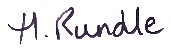 H. Rundle